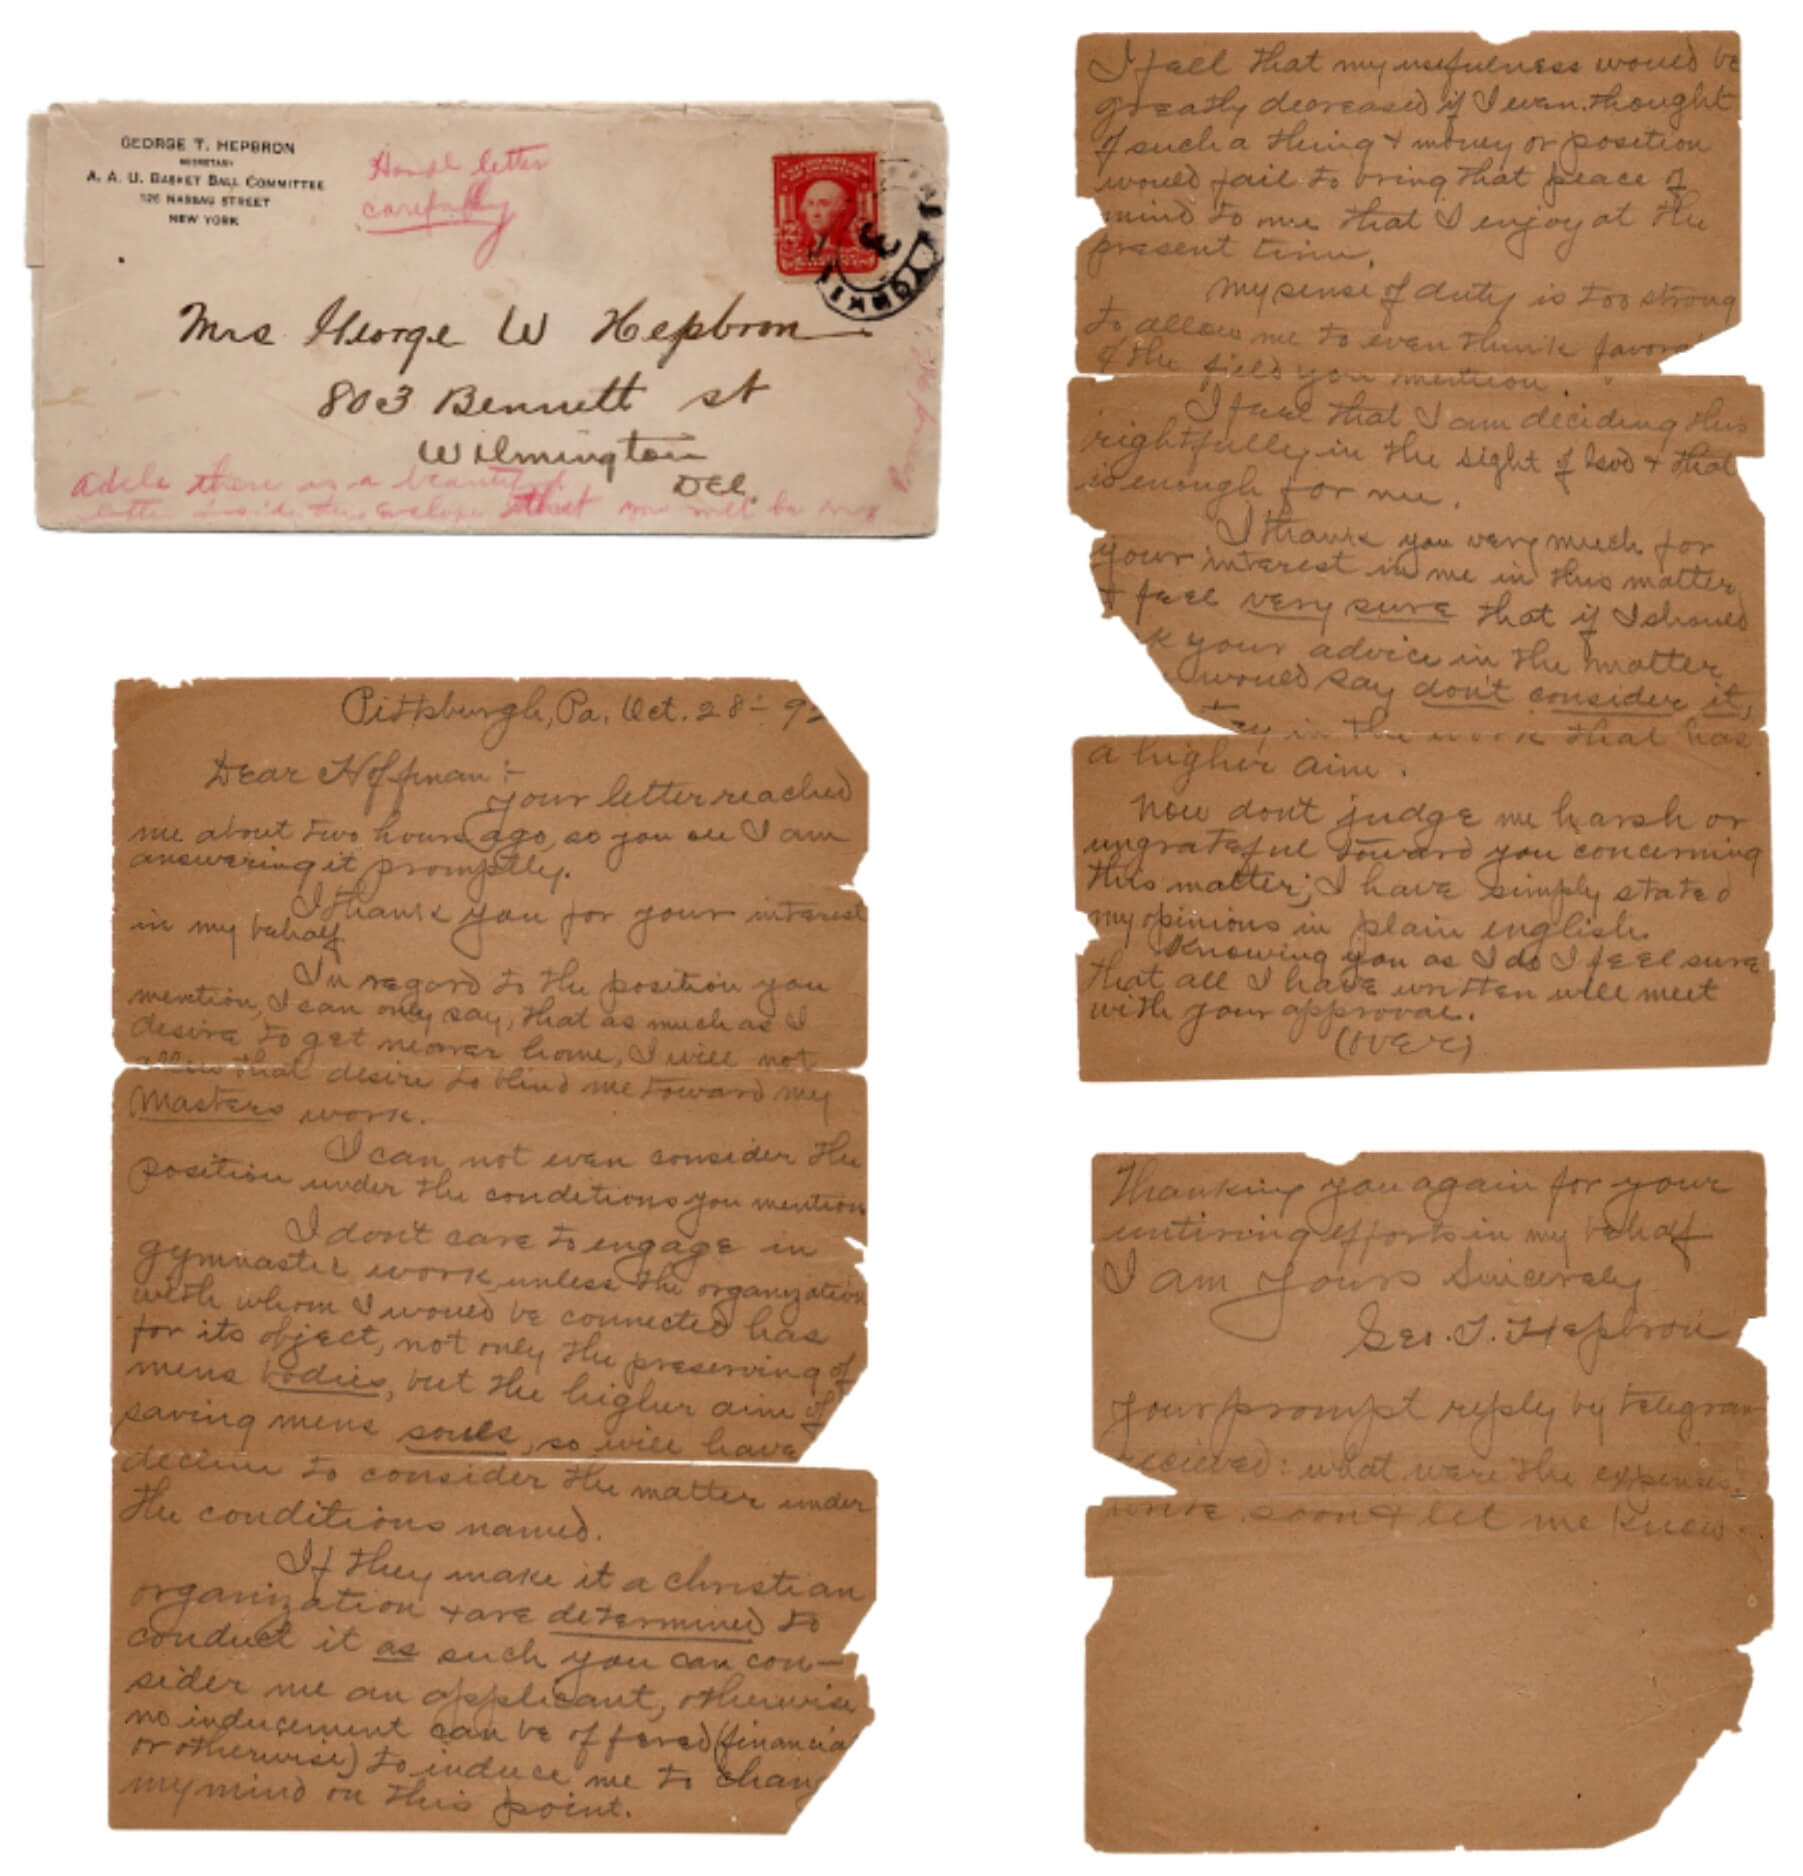 GEORGE T. HEPBRON
SECRETARY
A. A. U. BASKET BALL COMMITTEE
NASSAU STREET
NEW YORK
letter
carefully
Mrs George W Hepbron
803 Bennett st
Wilmington
Del.
Adele there is a beautiful
inside the envelope that you will be
Pittsburgh, Pa. Oct. 28 - 92
Dear Hoffman :-
your letter reached
me about two hours ago, so you see I am
answering it promptly.
I thank you for your interest
in my behalf
In regard to the position you
mention, I can only say, that as much as I
desire to get nearer home, I will not
allow that desire to blind me toward my
Masters work.
I can not even consider the
position under the conditions you mention
I don't care to engage in
gymnastic work unless the organization
with whom I would be connected has
for its object, not only the preserving of
mens bodies, but the higher aim of
saving mens souls, so will have
decline to consider the matter under
the conditions named.
If they make it a christian
organization + are determined to
conduct it as such you can con-
sider me an applicant, otherwise
no inducement can be offered (financia
or otherwise) to induce me to chang
my mind on this point.
I feel that my usefulness would be
greatly decreased if I even thought
of such a thing + money or position
would fail to bring that peace of
mind to me that I enjoy at the
present time.
My sense of duty is too strong
to allow me to even think favora
of the field you mention.
I feel that I am deciding this
rightfully in the sight of God + that
is enough for me.
I thank you very much for
your interest in me in this matter
+ feel very sure that if I should
k your advice in the matter
would say don't consider it,
in the work that has
a higher aim.
Now don't judge me harsh or
ungrateful toward you concerning
this matter; I have simply stated
my opinions in plain english.
Knowing you as I do I feel sure
that all I have written will meet
with your approval.
(OVER)
Thanking you again for your
untiring efforts in my behalf
I am Yours Sincerely
Geo. T. Hepbron
Your prompt reply by telegram
recieved: what were the expenses.
write soon + let me know.